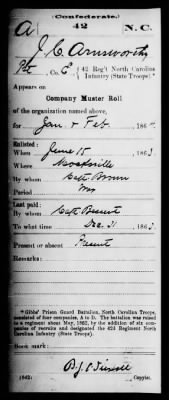 (Confederate.)
A 42 N.C.
J. C. Arnsworth
Pvt, Co. E, 42 Reg't North Carolina
Infantry (State Troops).*
Appears on
Company Muster Roll
of the organization named above,
for Jan & Feb, 1864
Enlisted:
When June 15, 1863
Where Mocksville
By whom Capt Brown
Period War
Last paid:
By whom Capt
To what time Dec. 31, 1863
Present or absent Present
Remarks:
*Gibbs' Prison Guard Battalion, North Carolina Troops,
consisted of four companies, A to D. The battalion was raised
to a regiment about May, 1862, by the addition of six com-
panies of recruits and designated the 42d Regiment North
Carolina Infantry (State Troops).
Book mark:
B. J.
(642) Copyist.